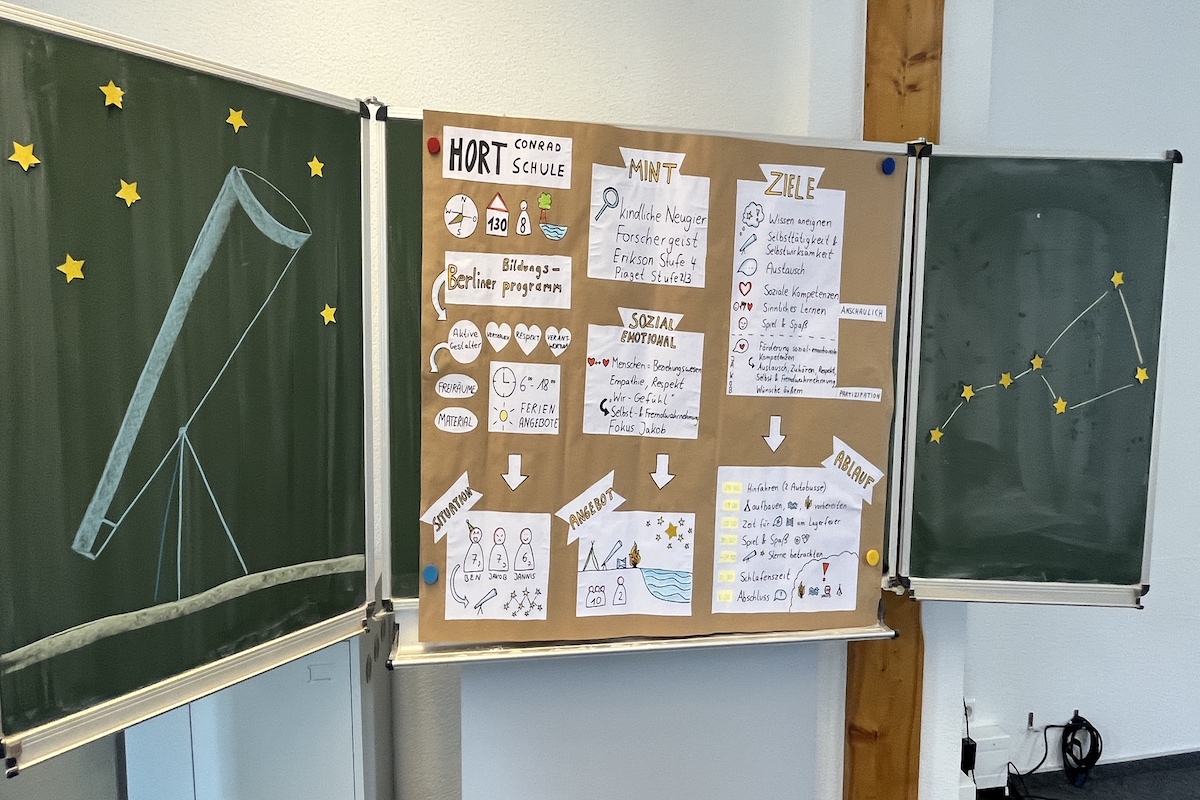 HORT CONRAD
SCHULE
N
W
O
S
130
8
Bildungs-
Berliner programm
Aktive
Gestalter
VERTRAUEN
RESPEKT
VERANT-
WORTUNG
FREIRÄUME
MATERIAL
6⁰⁰-18⁰⁰
FERIEN
ANGEBOTE
SITUATION
7
7
6
BEN JAKOB JANNIS
MINT
kindliche Neugier
Forschergeist
Erikson Stufe 4
Piaget Stufe 2/3
SOZIAL
EMOTIONAL
Menschen = Beziehungswesen
Empathie, Respekt
„Wir-Gefühl"
Selbst- & Fremdwahrnehmung
Fokus Jakob
ANGEBOT
10
2
ZIELE
Wissen aneignen
Selbsttätigkeit &
Selbstwirksamkeit
Austausch
Soziale Kompetenzen
Sinnliches Lernen
Spiel & Spaß
ANSCHAULICH
JAKOB
Förderung sozial-emotionale
Kompetenzen
Austausch, Zuhören, Respekt,
Selbst & Fremdwahrnehmung
Wünsche äußern
PARTIZIPATION
ABLAUF
Hinfahren (2 Autobusse)
aufbauen, , vorbereiten
Zeit für am Lagerfeuer
Spiel & Spaß
Sterne betrachten
Schlafenszeit
Abschluss
!